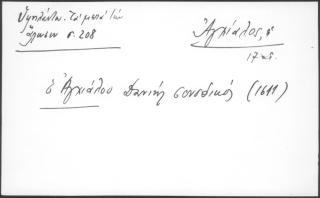 Ὑψηλάντου. Τὰ μετὰ τὴν
ἅλωσιν σ. 208
Ἀγχιάλος, ὁ
17 αἰ.
ὁ Ἀγχιάλου Δανιὴλ συνοδικός (1611)